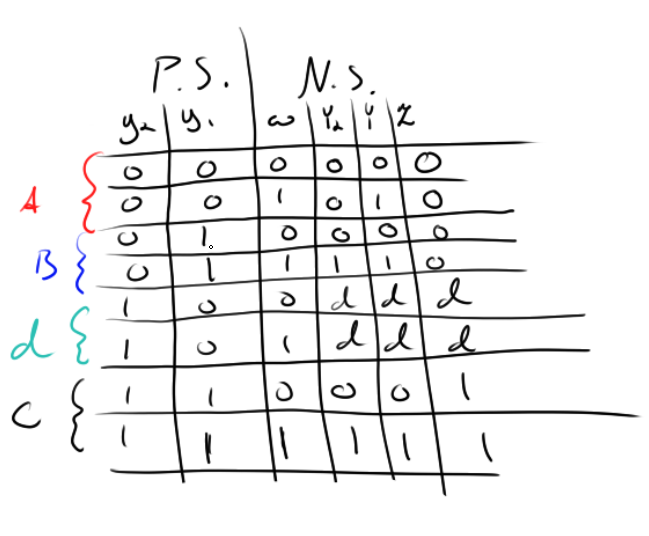 P.S. N.S.
y₂ y₁ ω Y₂ Y₁ Z
A 0 0 0 0 0 0
0 0 1 0 1 0
B 0 1 0 0 0 0
0 1 1 1 1 0
d 1 0 0 d d d
1 0 1 d d d
C 1 1 0 0 0 1
1 1 1 1 1 1